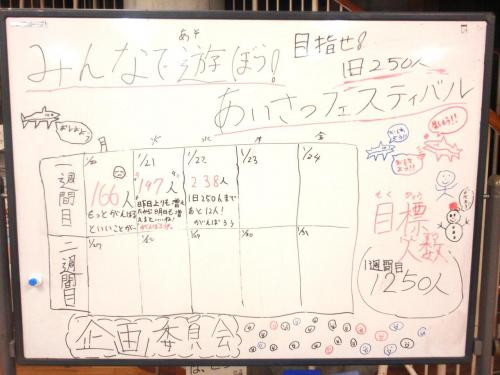 あそ
みんなで遊ぼう!
目指せ!
1日250人
あいさつフェスティバル
おはよう
月 火 水 木 金
一週間目
1/20
166人
もっとがんばる
といいことが…
1/21
197人
昨日よりも増え
1/22
238人
1日250人まで
あと12人!
がんばろう
1/23
1/24
二週間目
1/27
1/28
1/29
1/30
1/31
もくひょう
目標
人数
1週間目
1250人
企画委員会